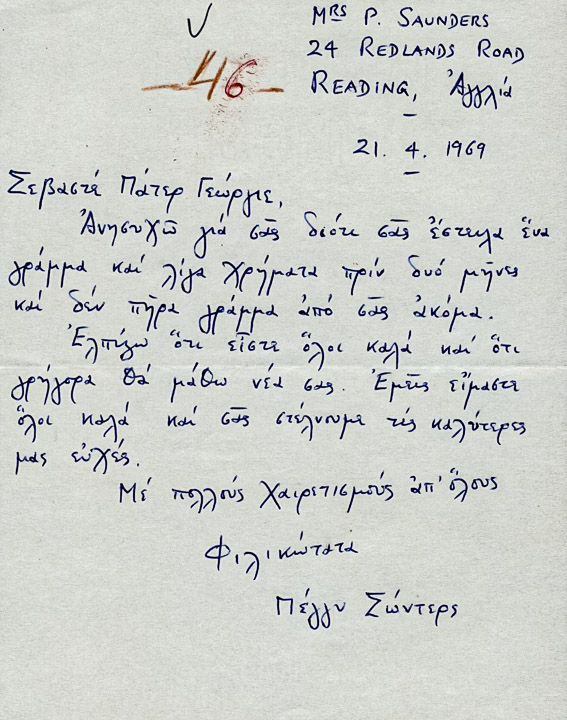 Mrs P. SAUNDERS
24 REDLANDS ROAD
46
READING, Ἀγγλία
21. 4. 1969
Σεβαστέ Πάτερ Γεώργιε,
Ἀνησυχῶ γιά σᾶς διότι σᾶς ἔστειλα ἕνα
γράμμα καί λίγα χρήματα πρίν δυό μῆνες
καί δέν πῆρα γράμμα ἀπό σᾶς ἀκόμα.
Ἐλπίζω ὅτι εἶστε ὅλοι καλά καί ὅτι
γρήγορα θά μάθω νέα σας. Ἐμεῖς εἴμαστε
ὅλοι καλά καί σᾶς στέλνουμε τίς καλύτερες
μας εὐχές.
Μέ πολλούς χαιρετισμούς ἀπ' ὅλους
Φιλικώτατα
Πέγγυ Σώντερς